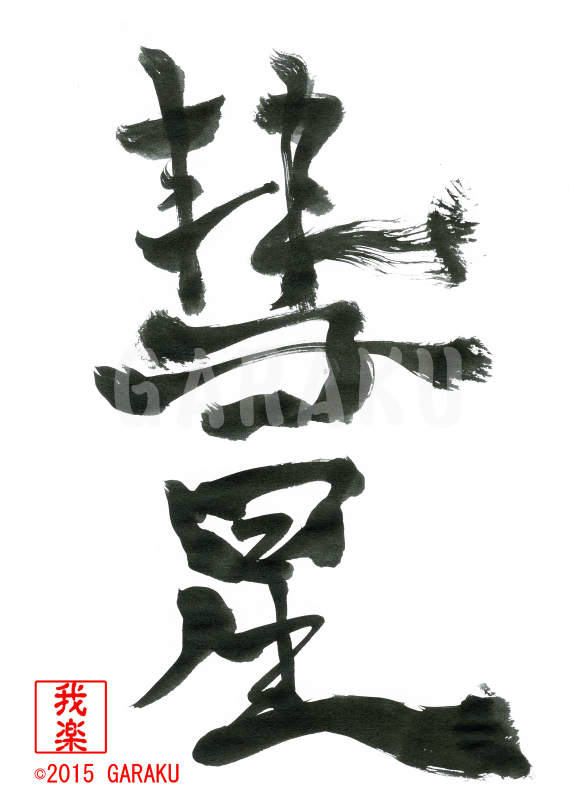 彗星
GARAKU
我楽
©2015 GARAKU